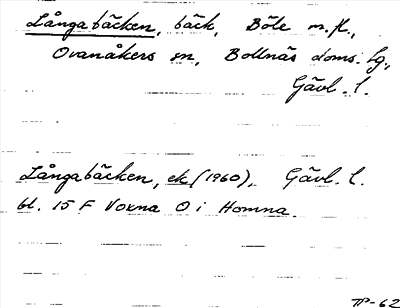 Långabäcken, bäck, Böle m.fl.,
Ovanåkers sn, Bollnäs doms. lg.,
Gävl. l.
Långabäcken, ek (1960), Gävl. l.
bl. 15 F Voxna O i Homna.
TP-62